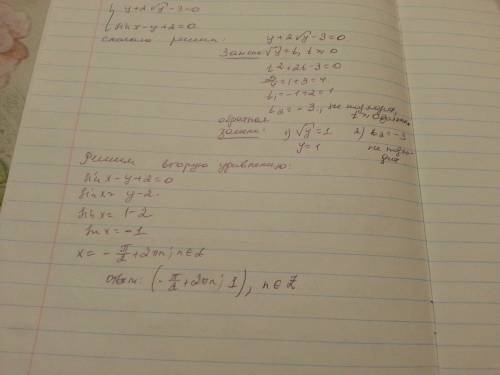 y+2√y-3=0
sinx-y+2=0
сначала решим: y+2√y-3=0
Замена: √y=t, t≥0
t²+2t-3=0
D/4=1+3=4
t₁=-1+2=1
t₂=-3, не подходит,
t≥0
обратная
замена: 1) √y=1 2) t₂=-3
y=1 не подхо-
дит
Решим вторую уравнению:
sinx-y+2=0
sinx=y-2
sinx=1-2
sinx=-1
x=-π/2+2πn; n∈Z
ответ: (-π/2+2πn; 1), n∈Z